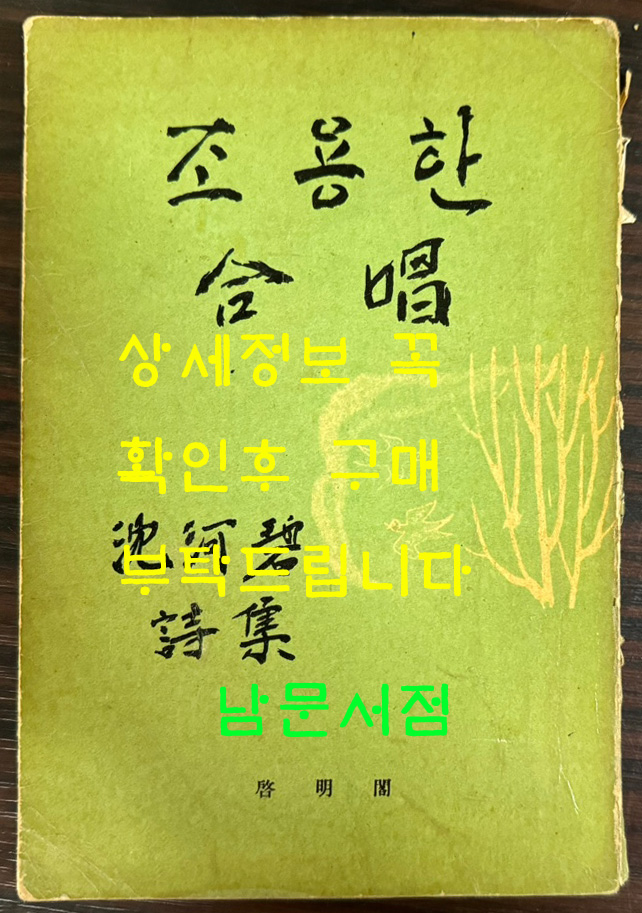 조용한
合唱
상세정보 꼭
확인후 구매
沈河碧
부탁드립니다
詩集
남문서점
啓明閣